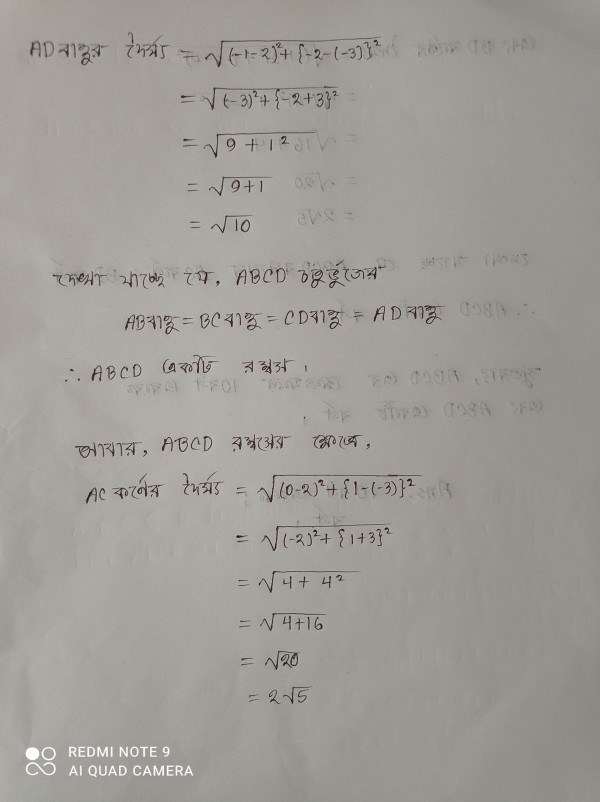 AD বাহুর দৈর্ঘ্য = √(-1-2)²+{-2-(-3)}²
= √(-3)²+{-2+3}²
= √9+1²
= √9+1
= √10
দেখা যাচ্ছে যে, ABCD চতুর্ভুজের
ABবাহু = BCবাহু = CDবাহু = ADবাহু
∴ ABCD একটি রম্বস।
আবার, ABCD রম্বসের ক্ষেত্রে,
AC কর্ণের দৈর্ঘ্য = √(0-2)²+{1-(-3)}²
= √(-2)²+{1+3}²
= √4+4²
= √4+16
= √20
= 2√5
REDMI NOTE 9
AI QUAD CAMERA